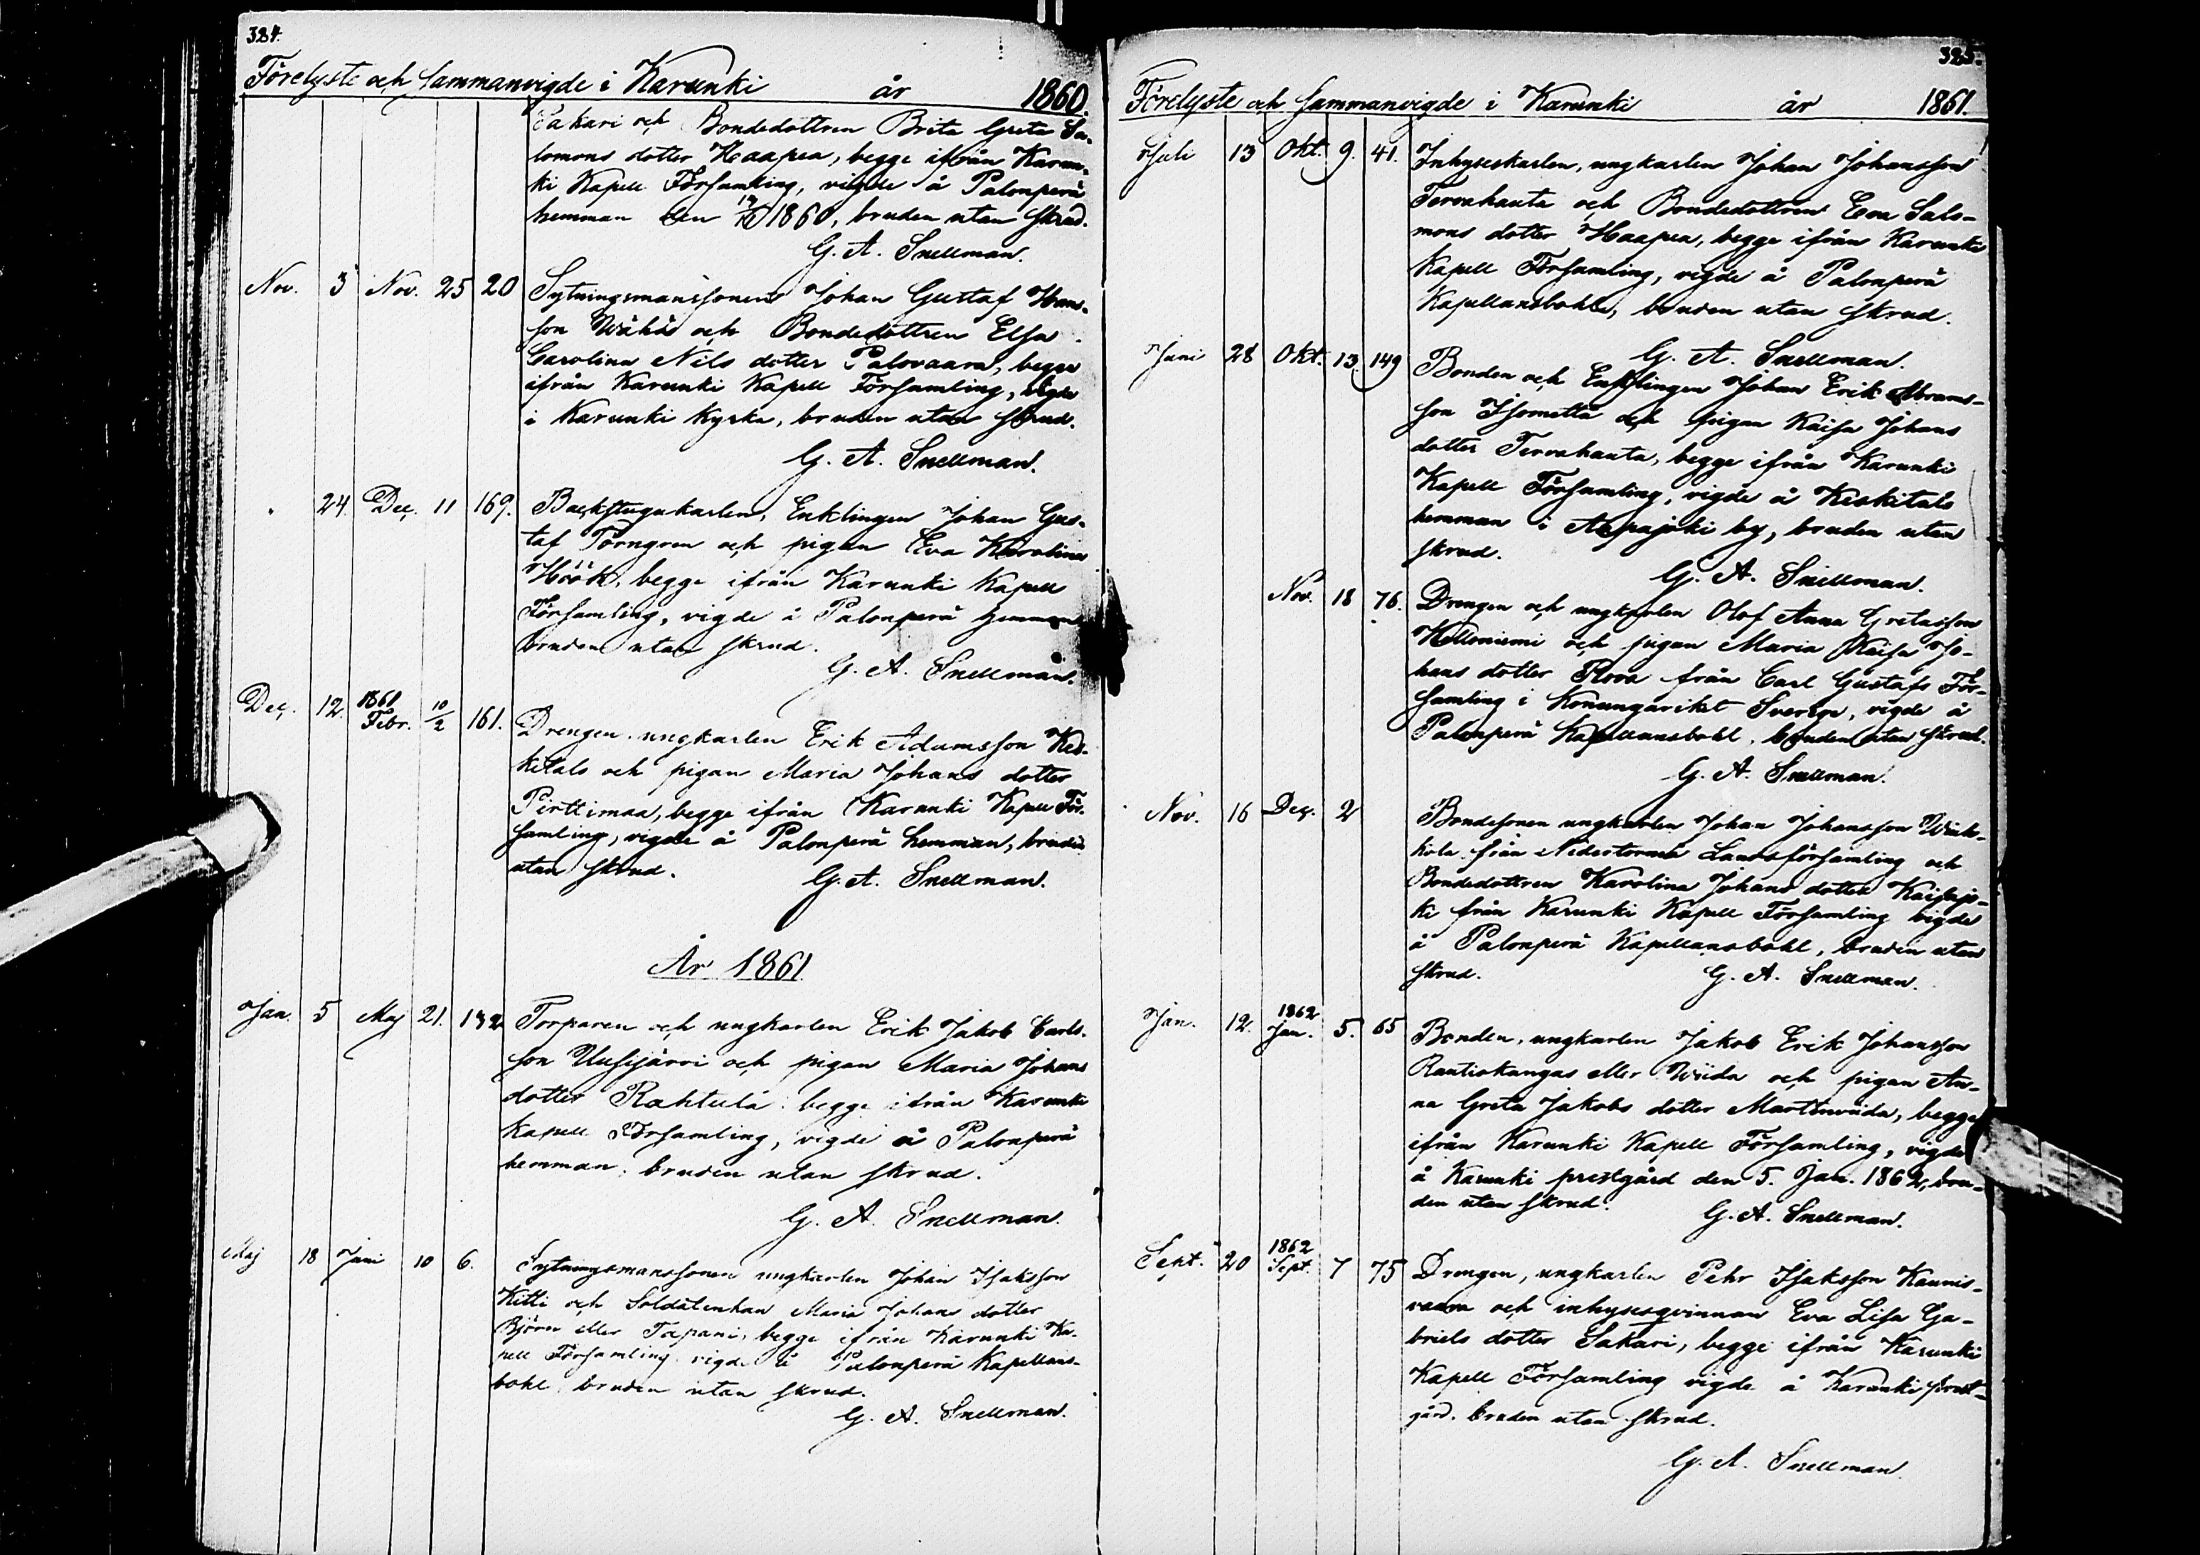 384.
Förelyste och Sammanvigde i Karunki år 1860.
Sakari och Bondedottren Brita Greta Sa-
lomons dotter Haapea, begge ifrån Karun-
ki Kapell Församling, vigde å Palonperä
hemman den 1860, bruden utan skrud.
G. A. Snellman.
Nov. 3 Nov. 25 20 Sytningsmanssonen Johan Gustaf Hans-
son Wähä och Bondedottren Elsa
Carolina Nils dotter Palovaara, begge
ifrån Karunki Kapell Församling, vigde
i Karunki Kyrka, bruden utan skrud.
G. A. Snellman.
24 Dec. 11 169. Backstugukarlen, Enklingen Johan Gus-
taf Törngren och pigan Eva Karolina
Höök, begge ifrån Karunki Kapell
Församling, vigde å Palonperä hemman
bruden utan skrud.
G. A. Snellman.
Dec. 12. 1861 Febr. 10/2 161. Drengen, ungkarlen Erik Adamsson Kes-
kitalo och pigan Maria Johans dotter
Pirttimaa, begge ifrån Karunki Kapell För-
samling, vigde å Palonperä hemman, bruden
utan skrud.
G. A. Snellman.
År 1861
Jan. 5 Maj 21. 132 Torparen och ungkarlen Erik Jakob Carls-
son Uusijärvi och pigan Maria Johans
dotter Rahtula begge ifrån Karunki
Kapell Församling, vigde å Palonperä
hemman, bruden utan skrud.
G. A. Snellman.
Maj 18 Juni 10 6. Sytningsmanssonen ungkarlen Johan Isaksson
Kitti och Soldatenkan Maria Johans dotter
Björn eller Tapani, begge ifrån Karunki Ka-
pell Församling vigde å Palonperä Kapellans-
bohl, bruden utan skrud.
G. A. Snellman.
385.
Förelyste och Sammanvigde i Karunki år 1861.
Juli 13 Okt. 9. 41. Inhyseskarlen, ungkarlen Johan Johansson
Tervahauta och Bondedottren Eva Salo-
mons dotter Haapea, begge ifrån Karunki
Kapell Församling, vigde å Palonperä
Kapellansbohle, bruden utan skrud.
G. A. Snellman.
Juni 28 Okt. 13. 149 Bonden och Enklingen Johan Erik Abrams-
son Isometta och pigan Kaisa Johans
dotter Tervahauta, begge ifrån Karunki
Kapell Församling, vigde å Keskitalo
hemman i Aapajoki by, bruden utan
skrud.
G. A. Snellman.
Nov. 18 76. Drengen och ungkarlen Olof Anna Gretasson
Kelloniemi och pigan Maria Kaisa Jo-
hans dotter Rova från Carl Gustafs För-
samling i Konungariket Sverige, vigde å
Palonperä Kapellansbohl, bruden utan skrud.
G. A. Snellman.
Nov. 16 Dec. 2 Bondesonen ungkarlen Johan Johansson Wuk-
kola från Nedertorneå Landsförsamling och
Bondedottren Karolina Johans dotter Kaisajo-
ki från Karunki Kapell Församling vigde
å Palonperä Kapellansbohl, bruden utan
skrud.
G. A. Snellman.
Jan. 12. 1862 Jan. 5. 65 Bonden, ungkarlen Jakob Erik Johansson
Rautiokangas eller Wiida och pigan An-
na Greta Jakobs dotter Martinviida, begge
ifrån Karunki Kapell Församling, vigde
å Karunki prestgård den 5. Jan. 1862, bru-
den utan skrud.
G. A. Snellman.
Sept. 20 1862 Sept. 7 75 Drengen, ungkarlen Pehr Isaksson Kaunis-
vaara och inhysesqvinnan Eva Lisa Ga-
briels dotter Sakari, begge ifrån Karunki
Kapell Församling vigde å Karunki prest-
gård, bruden utan skrud.
G. A. Snellman.